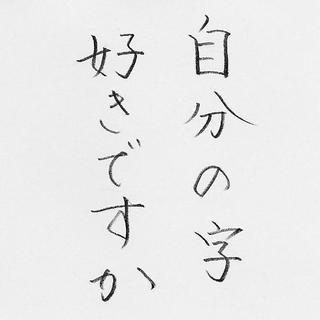 自分の字
好きですか